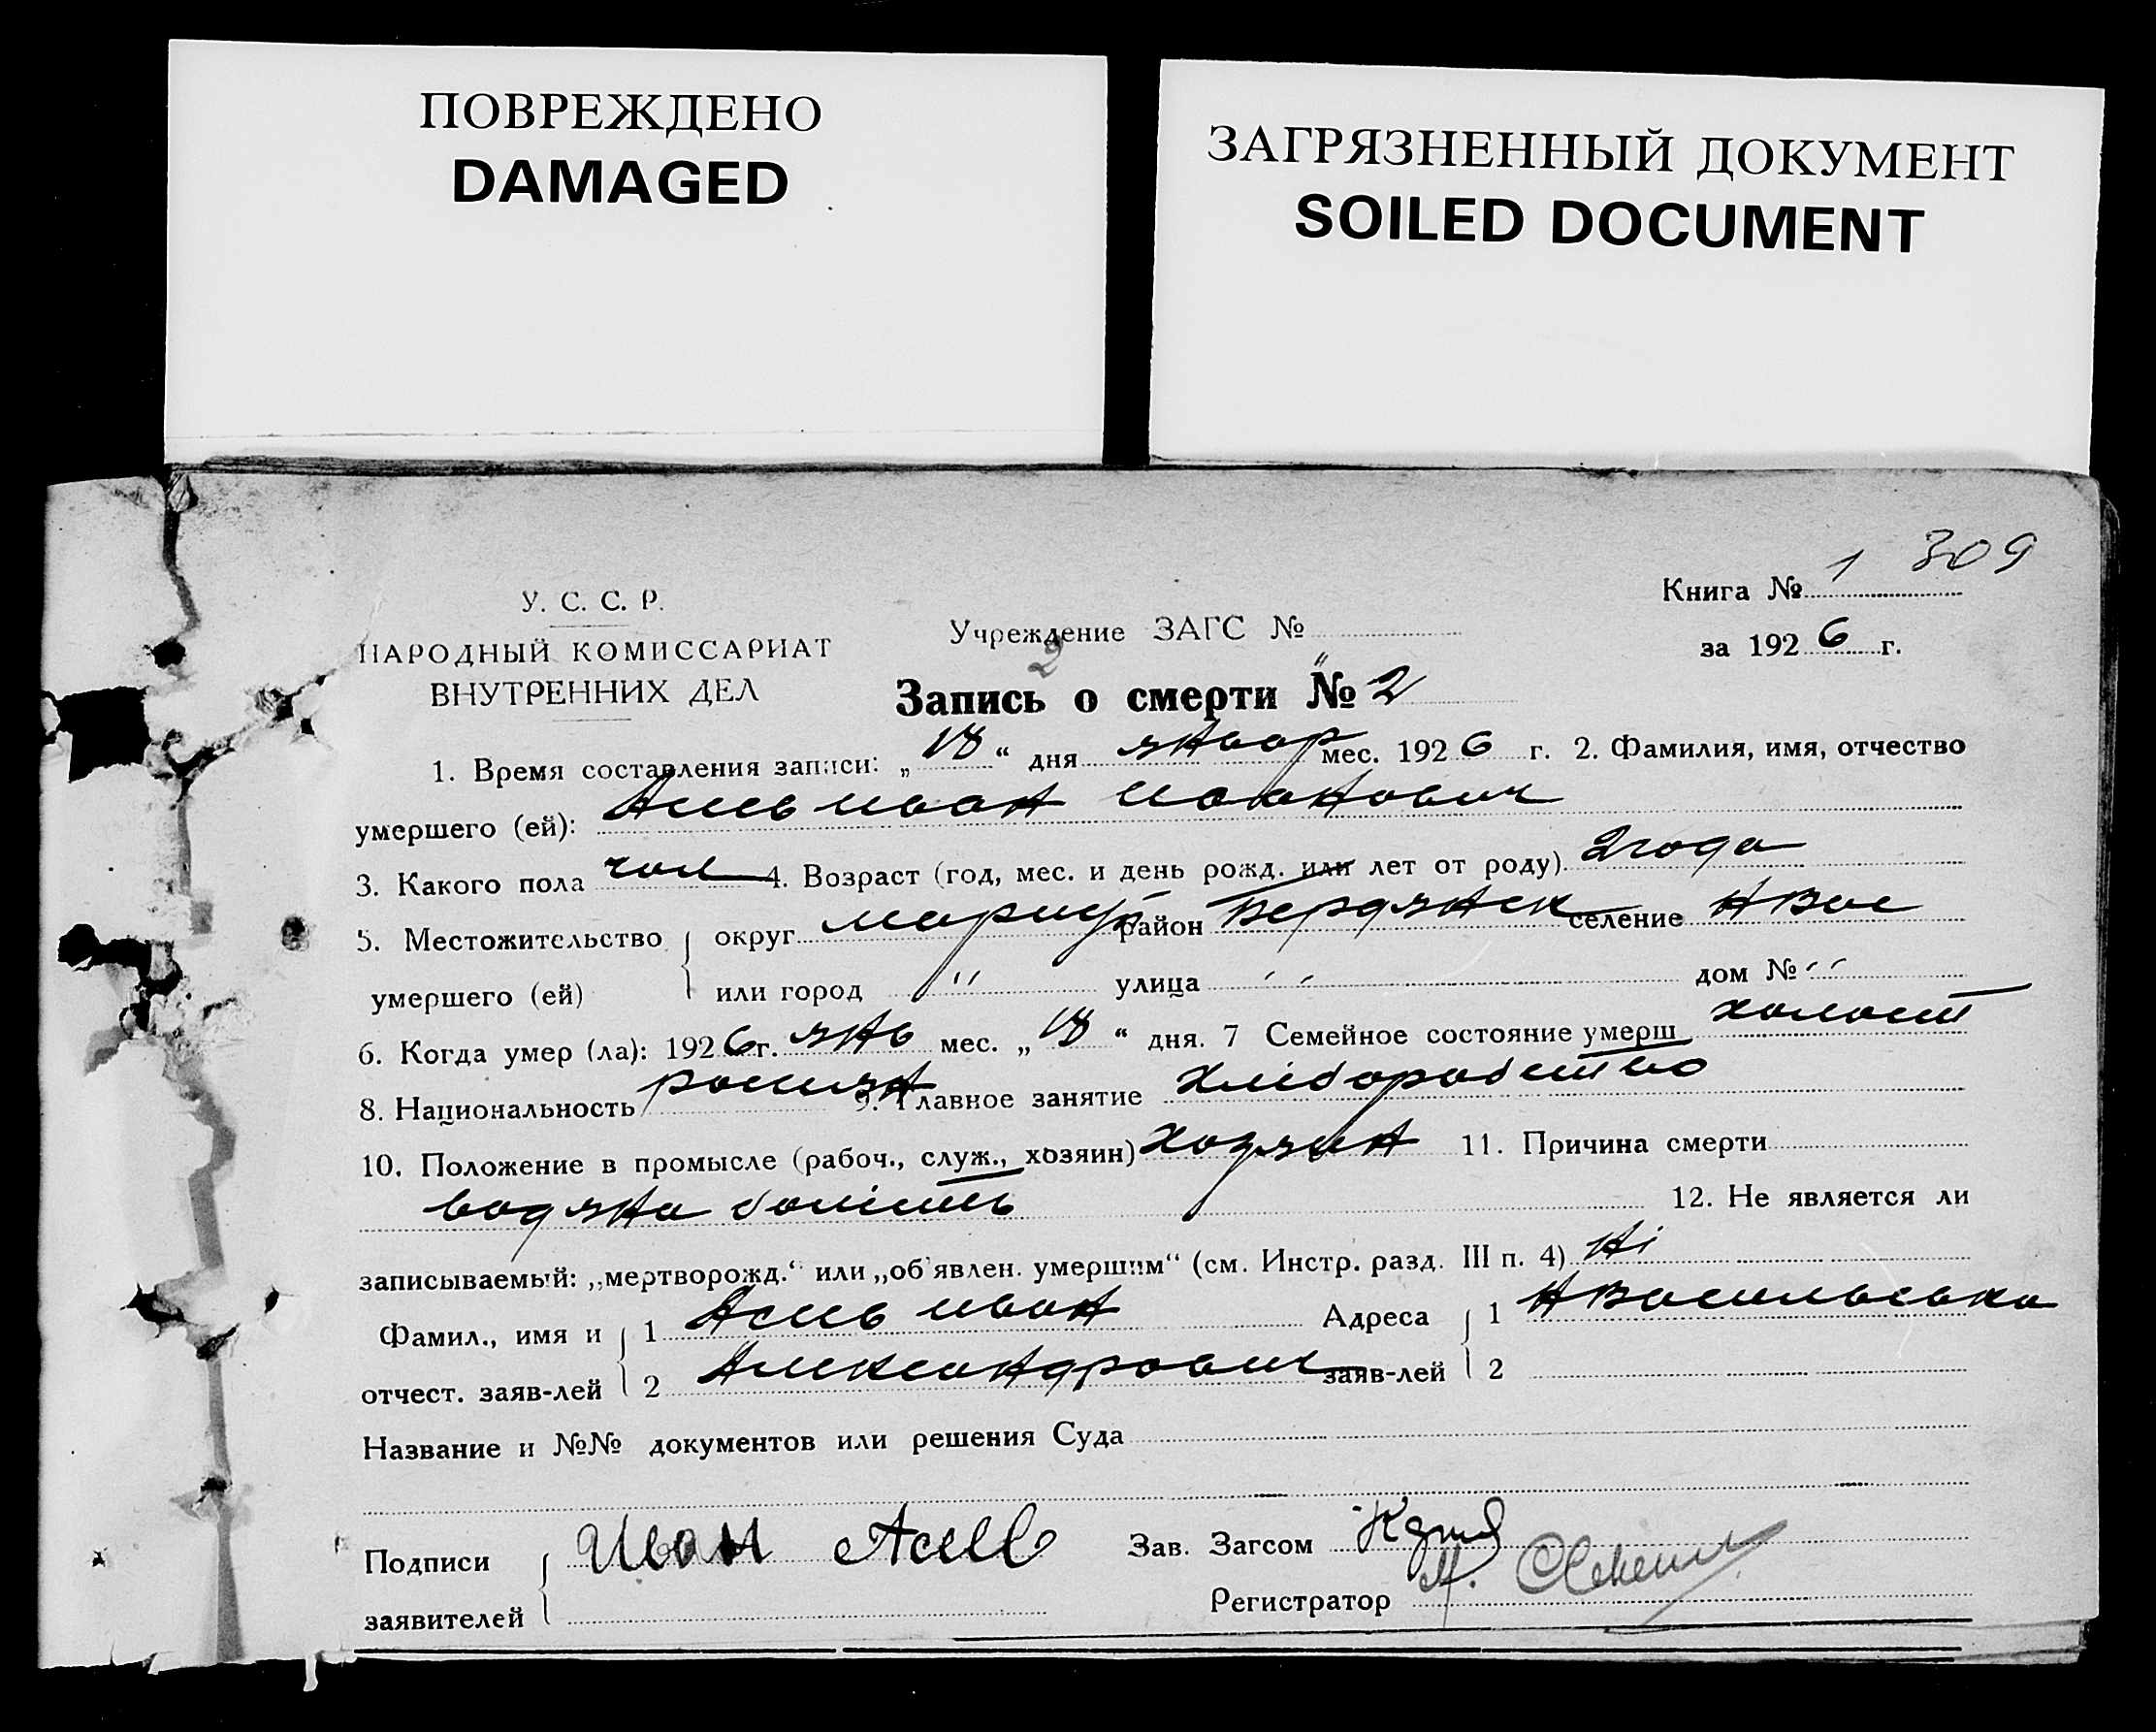 ПОВРЕЖДЕНО
DAMAGED
ЗАГРЯЗНЕННЫЙ ДОКУМЕНТ
SOILED DOCUMENT
309
У. С. С. Р.
НАРОДНЫЙ КОМИССАРИАТ
ВНУТРЕННИХ ДЕЛ
Учреждение ЗАГС №
2
Книга № 1
за 1926 г.
Запись о смерти № 2
1. Время составления записи: „18“ дня январ мес. 1926 г. 2. Фамилия, имя, отчество
умершего (ей): Иван Иванович
3. Какого пола чол 4. Возраст (год, мес. и день рожд. или лет от роду) 2 года
5. Местожительство округ Мариуп район Бердянск селение НВас
умершего (ей) или город " улица " дом № "
6. Когда умер (ла): 1926 г. янв мес. „18“ дня. 7 Семейное состояние умерш холост
8. Национальность 9. Главное занятие хліборобство
10. Положение в промысле (рабоч., служ., хозяин) хозяин 11. Причина смерти
водяна болість 12. Не является ли
записываемый: „мертворожд.“ или „об'явлен. умершим“ (см. Инстр. разд. III п. 4) Ні
Фамил., имя и 1 Иван Адреса 1 НВасильевка
отчест. заяв-лей 2 Александрович заяв-лей 2
Название и №№ документов или решения Суда
Подписи Иван Зав. Загсом
заявителей Регистратор